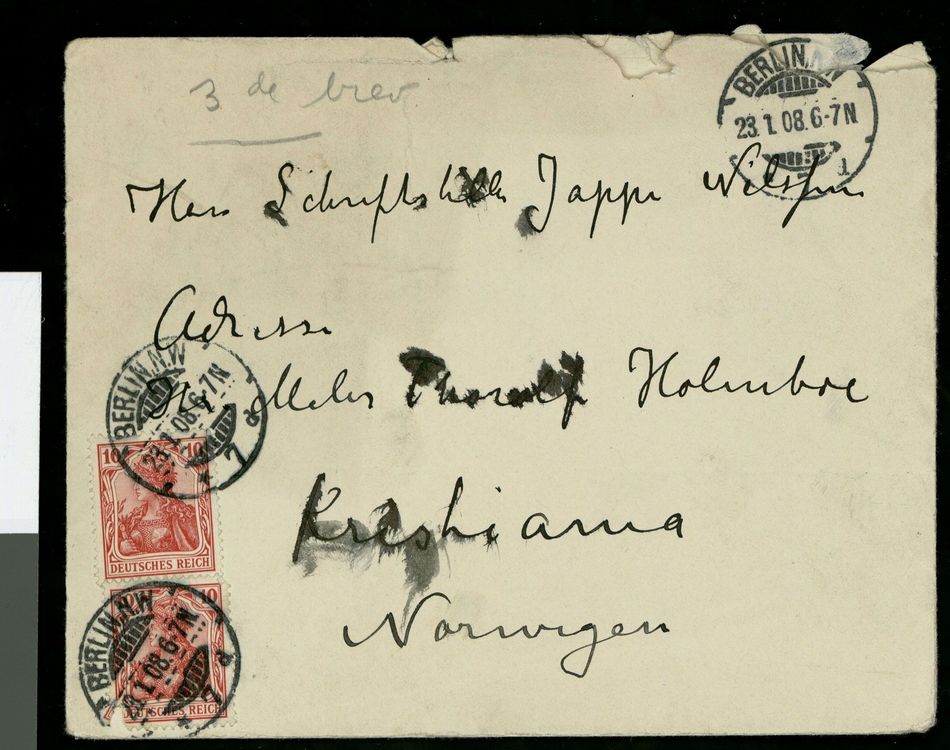 3 de brev
BERLIN. N.W
23.1.08.6-7N
Herr Schriftsteller Jappe Nilssen
Adresse
BERLIN. N.W
23.1.08.6-7N
7 a
Hr Maler Thorolf Holmboe
10 10
DEUTSCHES REICH
Kristiania
Norwegen
10
BERLIN. N.W
23.1.08.6-7N
7 a
DEUTSCHES REICH